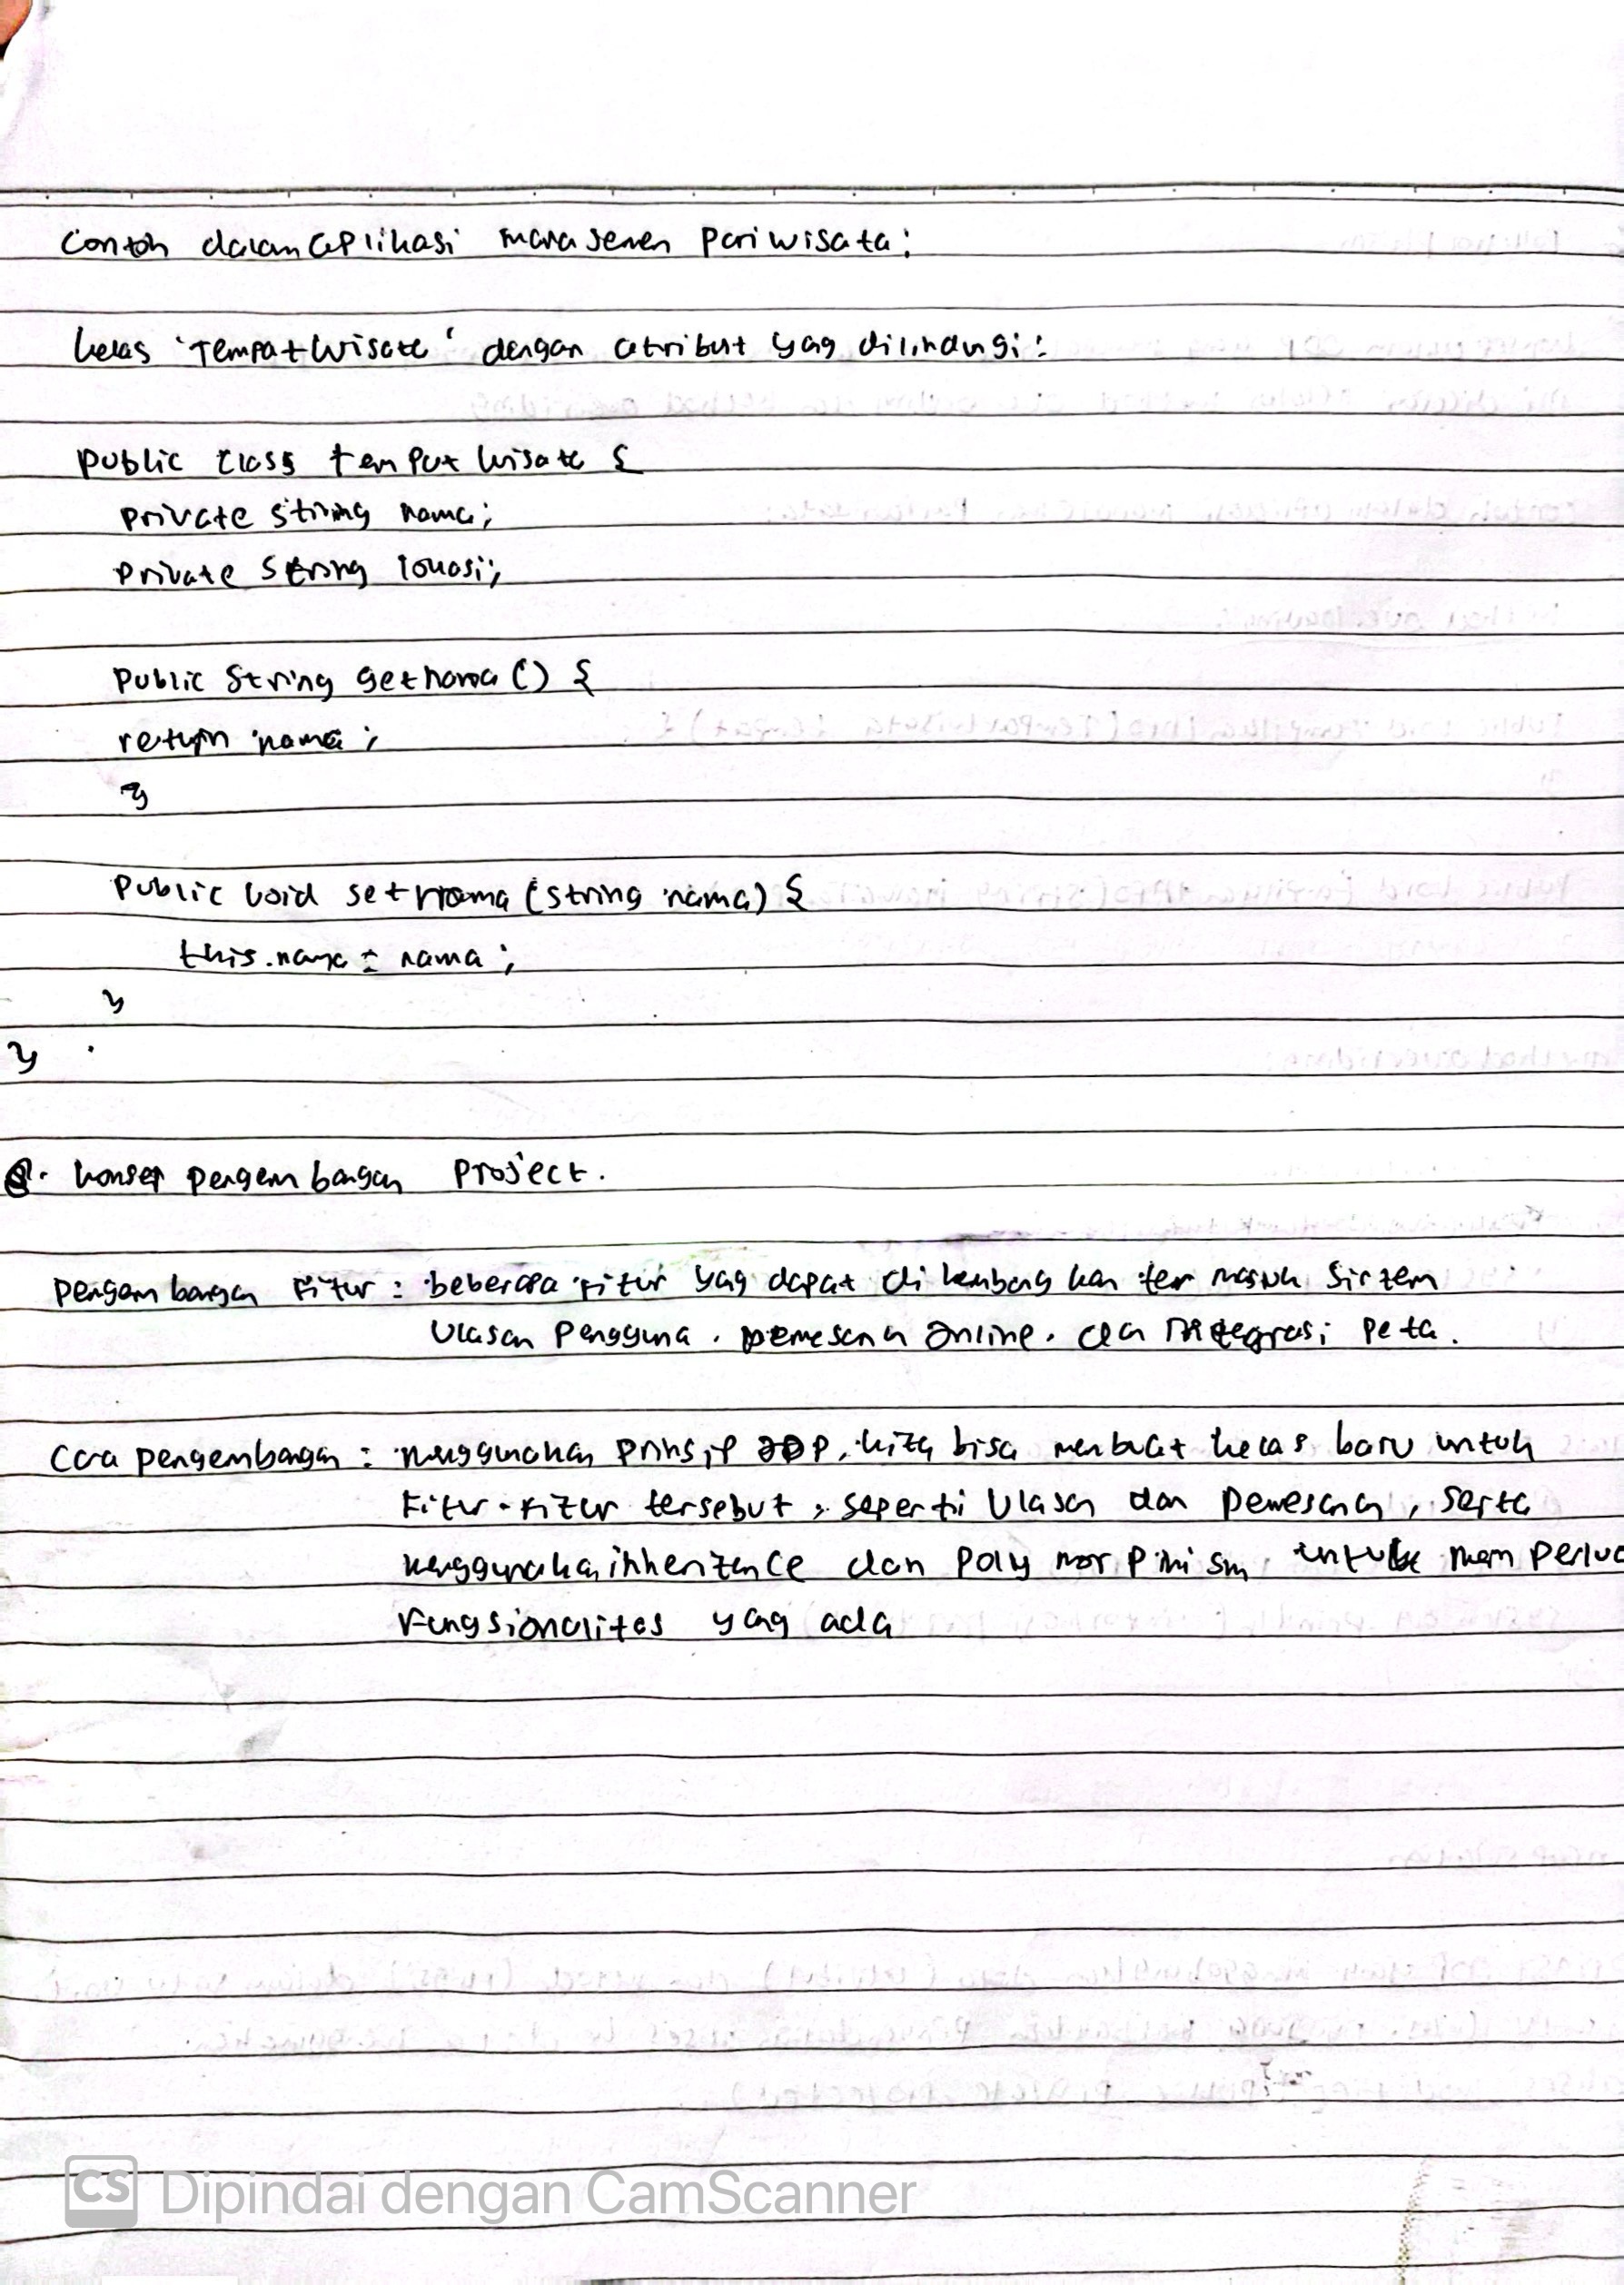 Contoh dalam aplikasi manajemen pariwisata:
kelas 'TempatWisata' dengan atribut yang dilindungi:
public class tempat wisata {
private string nama;
private string lokasi;
public string getnama () {
return nama;
}
public void setnama (string nama) {
this.nama = nama;
}
}
8. konsep pengembangan project.
pengembangan fitur : beberapa fitur yag dapat di kembangkan termasuk sistem
ulasan pengguna, pemesanan online. dan integrasi peta.
cara pengembangan : menggunakan prinsip OOP, kita bisa membuat kelas baru untuk
fitur-fitur tersebut, seperti ulasan dan pemesanan, serta
menggunakan inheritence dan polymorphism untuk memperlua
fungsionalitas yag ada
CS Dipindai dengan CamScanner